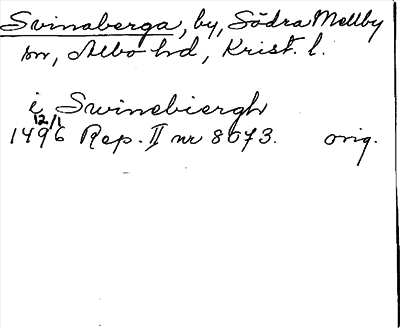 Svinaberga, by, Södra Mellby
sn, Albo hd, Krist. l.
i Swinebiergh
12/1
1496 Rep. II nr 8073. orig.